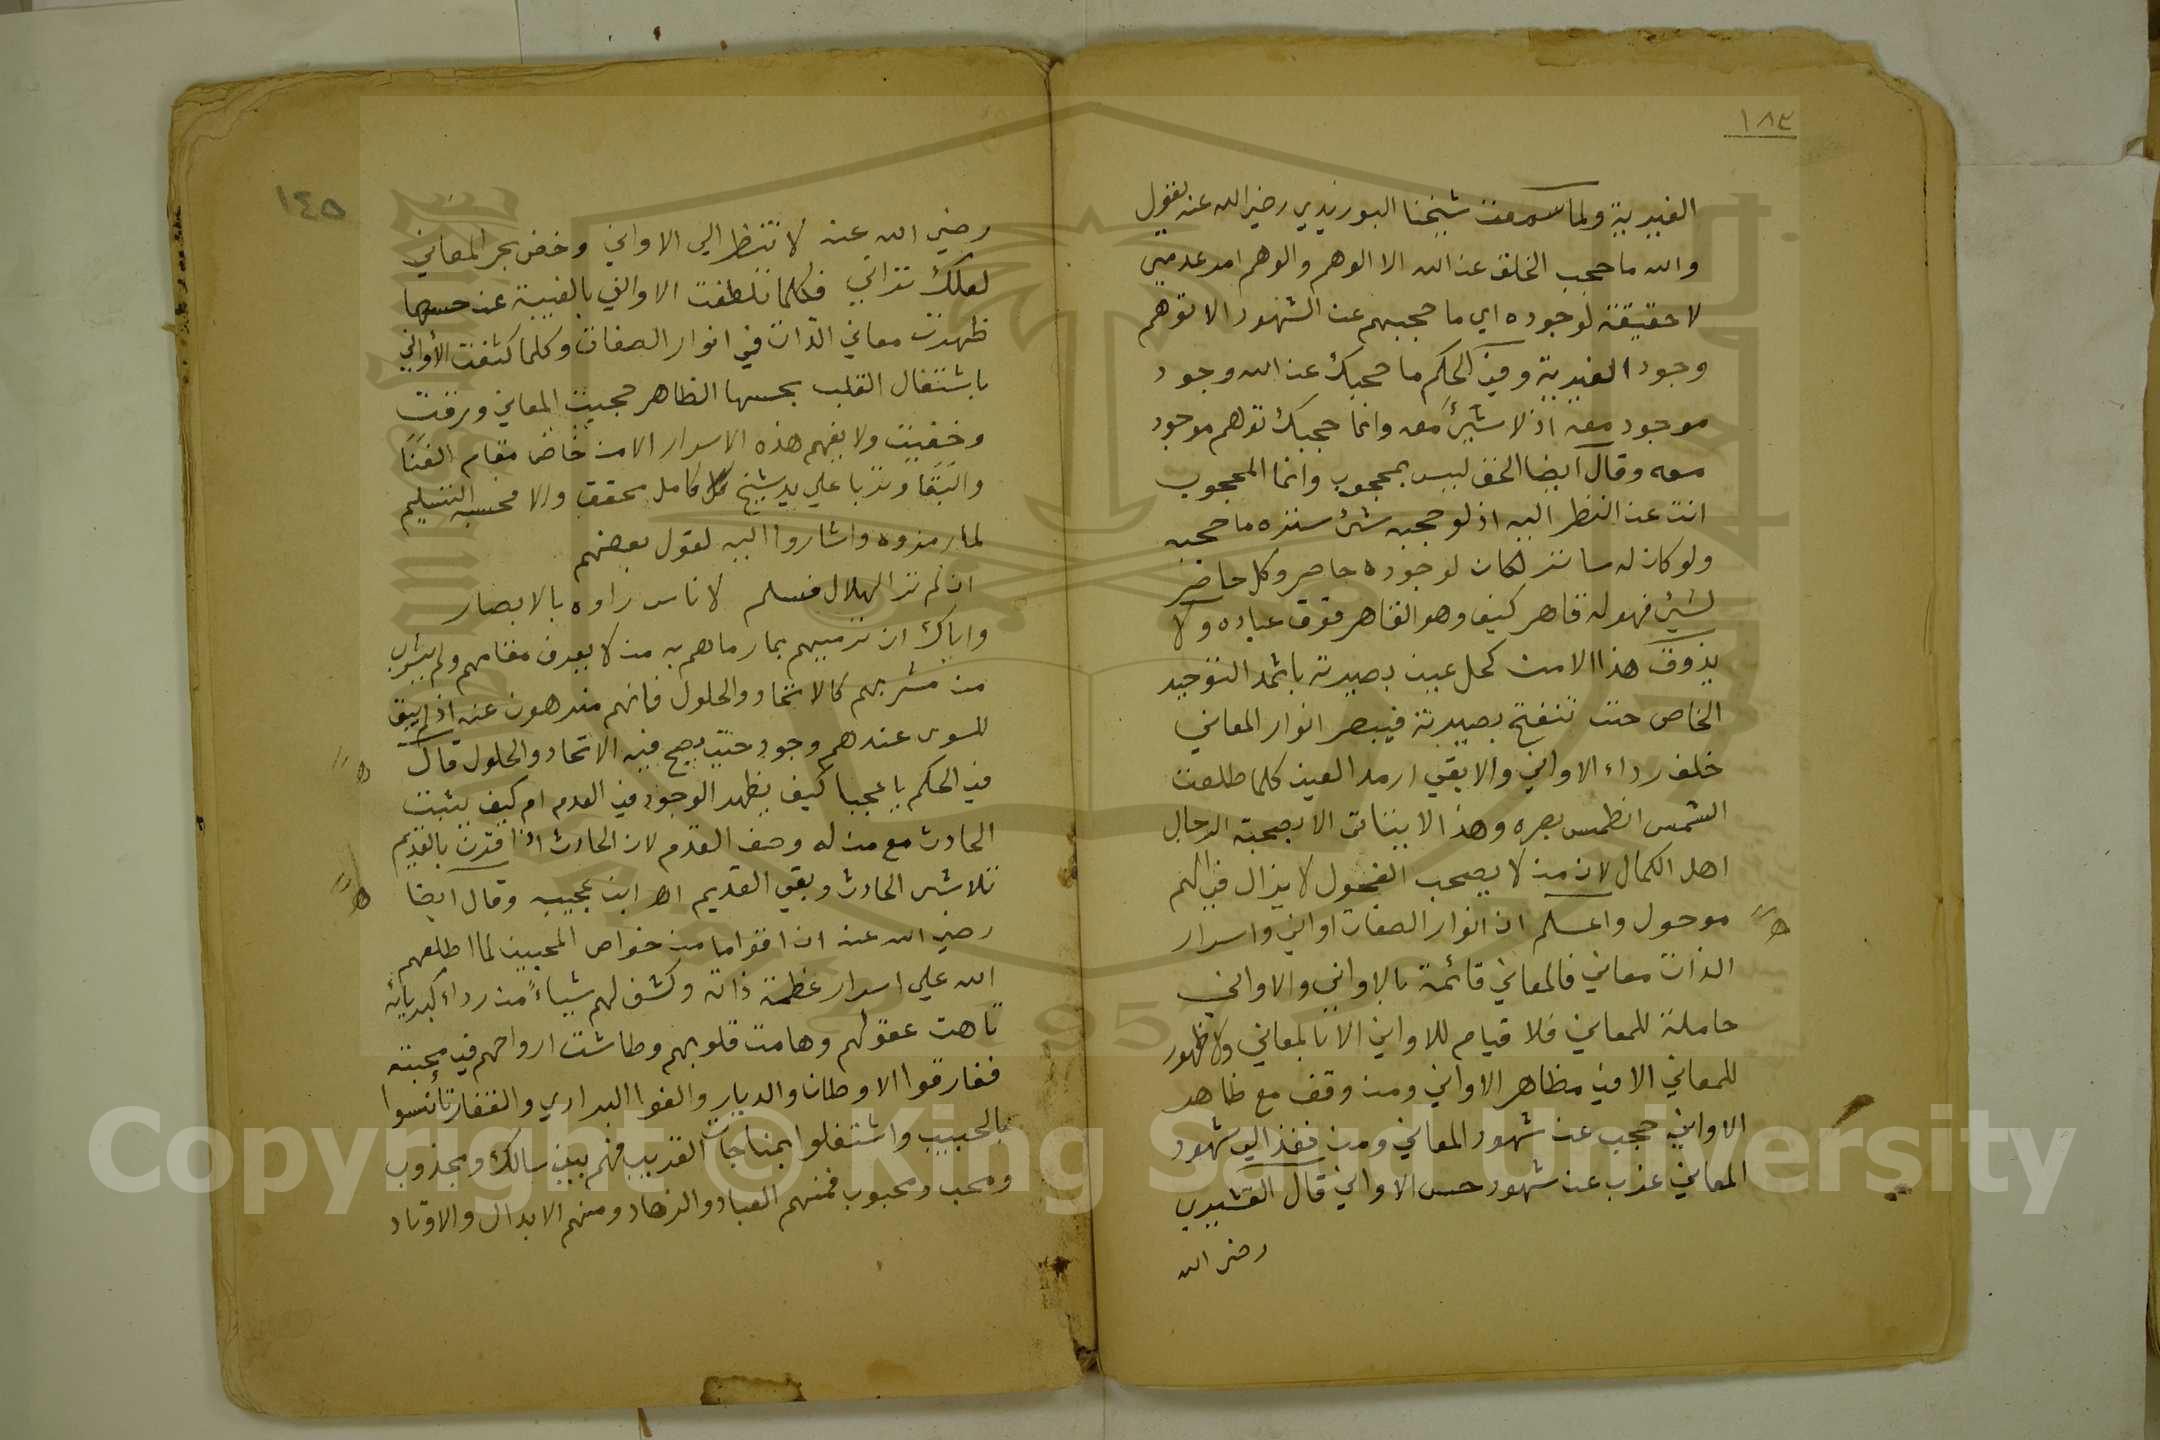 ١٨٣
الغيرية ولما سمعت شيخنا البوزيدي رضي الله عنه يقول
والله ما حجب الخلق عن الله الا الوهم والوهم امر عدمي
لا حقيقة لوجوده اي ما حجبهم عن الشهود الا توهم
وجود الغيرية وفي الحكم ما حجبك عن الله وجود
موجود معه اذ لا شيئ معه وانما حجبك توهم موجود
معه وقال ايضا الحق ليس بمحجوب وانما المحجوب
انت عن النظر اليه اذ لو حجبه شئ ستره ما حجبه
ولو كان له ساتر لكان لوجوده حاصر وكل حاصر
لشيئ فهو له قاهر كيف وهو القاهر فوق عباده ولا
يذوق هذا الا من كحل عين بصيرته باثمد التوحيد
الخاص حتى تنفتح بصيرته فيبصر انوار المعاني
خلف رداء الاواني والا بقي ارمد العين كلما طلعت
الشمس انطمس بصره وهذا لا يتاتى الا بصحبة الرجال
اهل الكمال لان من لا يصحب الفحول لا يزال في الهم
موحول واعلم ان انوار الصفات اواني واسرار
الذات معاني فالمعاني قائمة بالاواني والاواني
حاملة للمعاني فلا قيام للاواني الا بالمعاني ولا ظهور
للمعاني الا في مظاهر الاواني ومن وقف مع ظاهر
الاواني حجب عن شهود المعاني ومن نفذ الي شهود
المعاني غرب عن شهود حس الاواني قال القشيري
رضي الله
١٤٥
رضي الله عنه لا تنظر الي الاواني وخض بحر المعاني
لعلك تراني فكلما تلطفت الاواني بالغيبة عن حسها
ظهرت معاني الذات في انوار الصفات وكلما كثفت الأواني
باشتغال القلب بحسها الظاهر حجبت المعاني ورقت
وخفيت ولا يفهم هذه الاسرار الا من خاض مقام الفنا
والبقا وتربا علي يد شيخ كامل محقق والا فحسبه التسليم
لما رمزوه واشاروا اليه لقول بعضهم
ان لم تر الهلال فسلم لاناس راوه بالابصار
واياك ان ترميهم بما رماهم به من لا يعرف مقامهم ولم يشرب
من مشربهم كالاتحاد والحلول فانهم منزهون عنه اذ لم يبق
للسوى عندهم وجود حتى يصح فيه الاتحاد والحلول قال
في الحكم يا عجبا كيف يظهر الوجود في العدم ام كيف يثبت
الحادث مع من له وصف القدم لان الحادث اذا اقترن بالقديم
تلاشى الحادث وبقي القديم اه ابن عجيبه وقال ايضا
رضي الله عنه ان اقواما من خواص المحبين لما اطلعهم
الله علي اسرار عظمة ذاته وكشف لهم شياءً من رداء كبريائه
تاهت عقولهم وهامت قلوبهم وطاشت ارواحهم في محبته
ففارقوا الاوطان والديار والفوا البراري والقفار تأنسوا
بالحبيب واشتغلوا بمناجات القريب فهم بين سالك ومجذوب
ومحب ومحبوب فمنهم العباد والزهاد ومنهم الابدال والاوتاد
Copyright © King Saud University